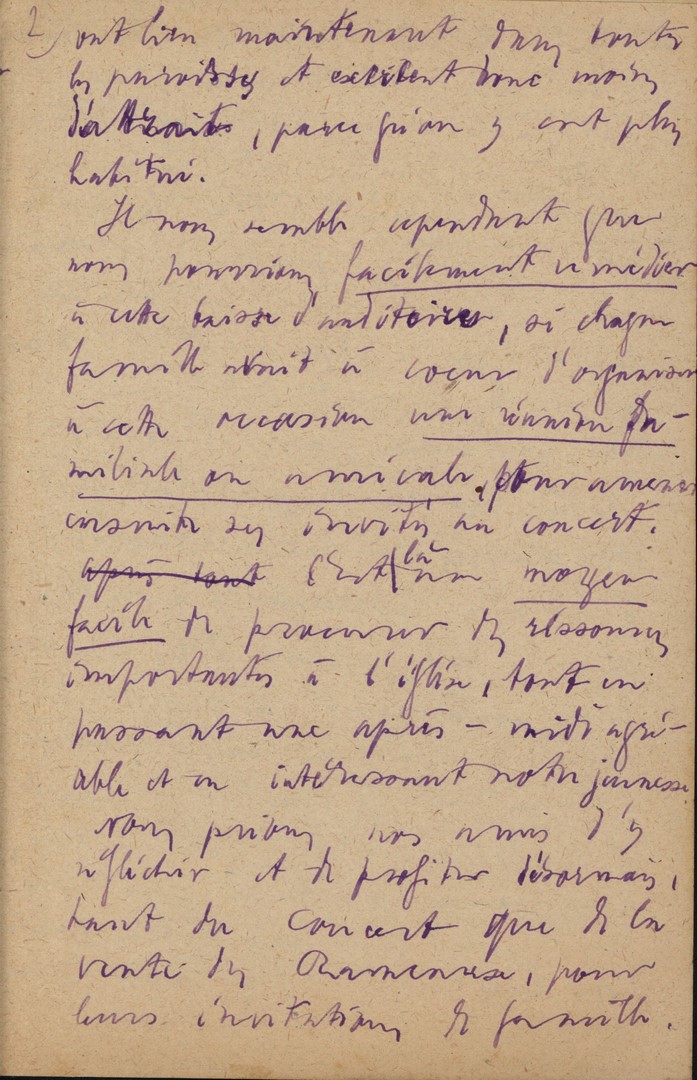 2) ont lieu maintenant dans toutes
les paroisses et excitent donc moins
d'attraits, parce qu'on y est plus
habitué.
Il nous semble cependant que
nous pourrions facilement remédier
à cette baisse d'auditoires, si chaque
famille avait à coeur d'organiser
à cette occasion une réunion fa-
miliale ou amicale, pour amener
ensuite ses invités au concert.
après tout C'est là un moyen
facile de procurer des ressources
importantes à l'église, tout en
passant une après-midi agré-
able et en intéressant notre jeunesse
Nous prions nos amis d'y
réfléchir et de profiter désormais,
tant du Concert que de la
vente des Rameaux, pour
leurs invitations de famille.